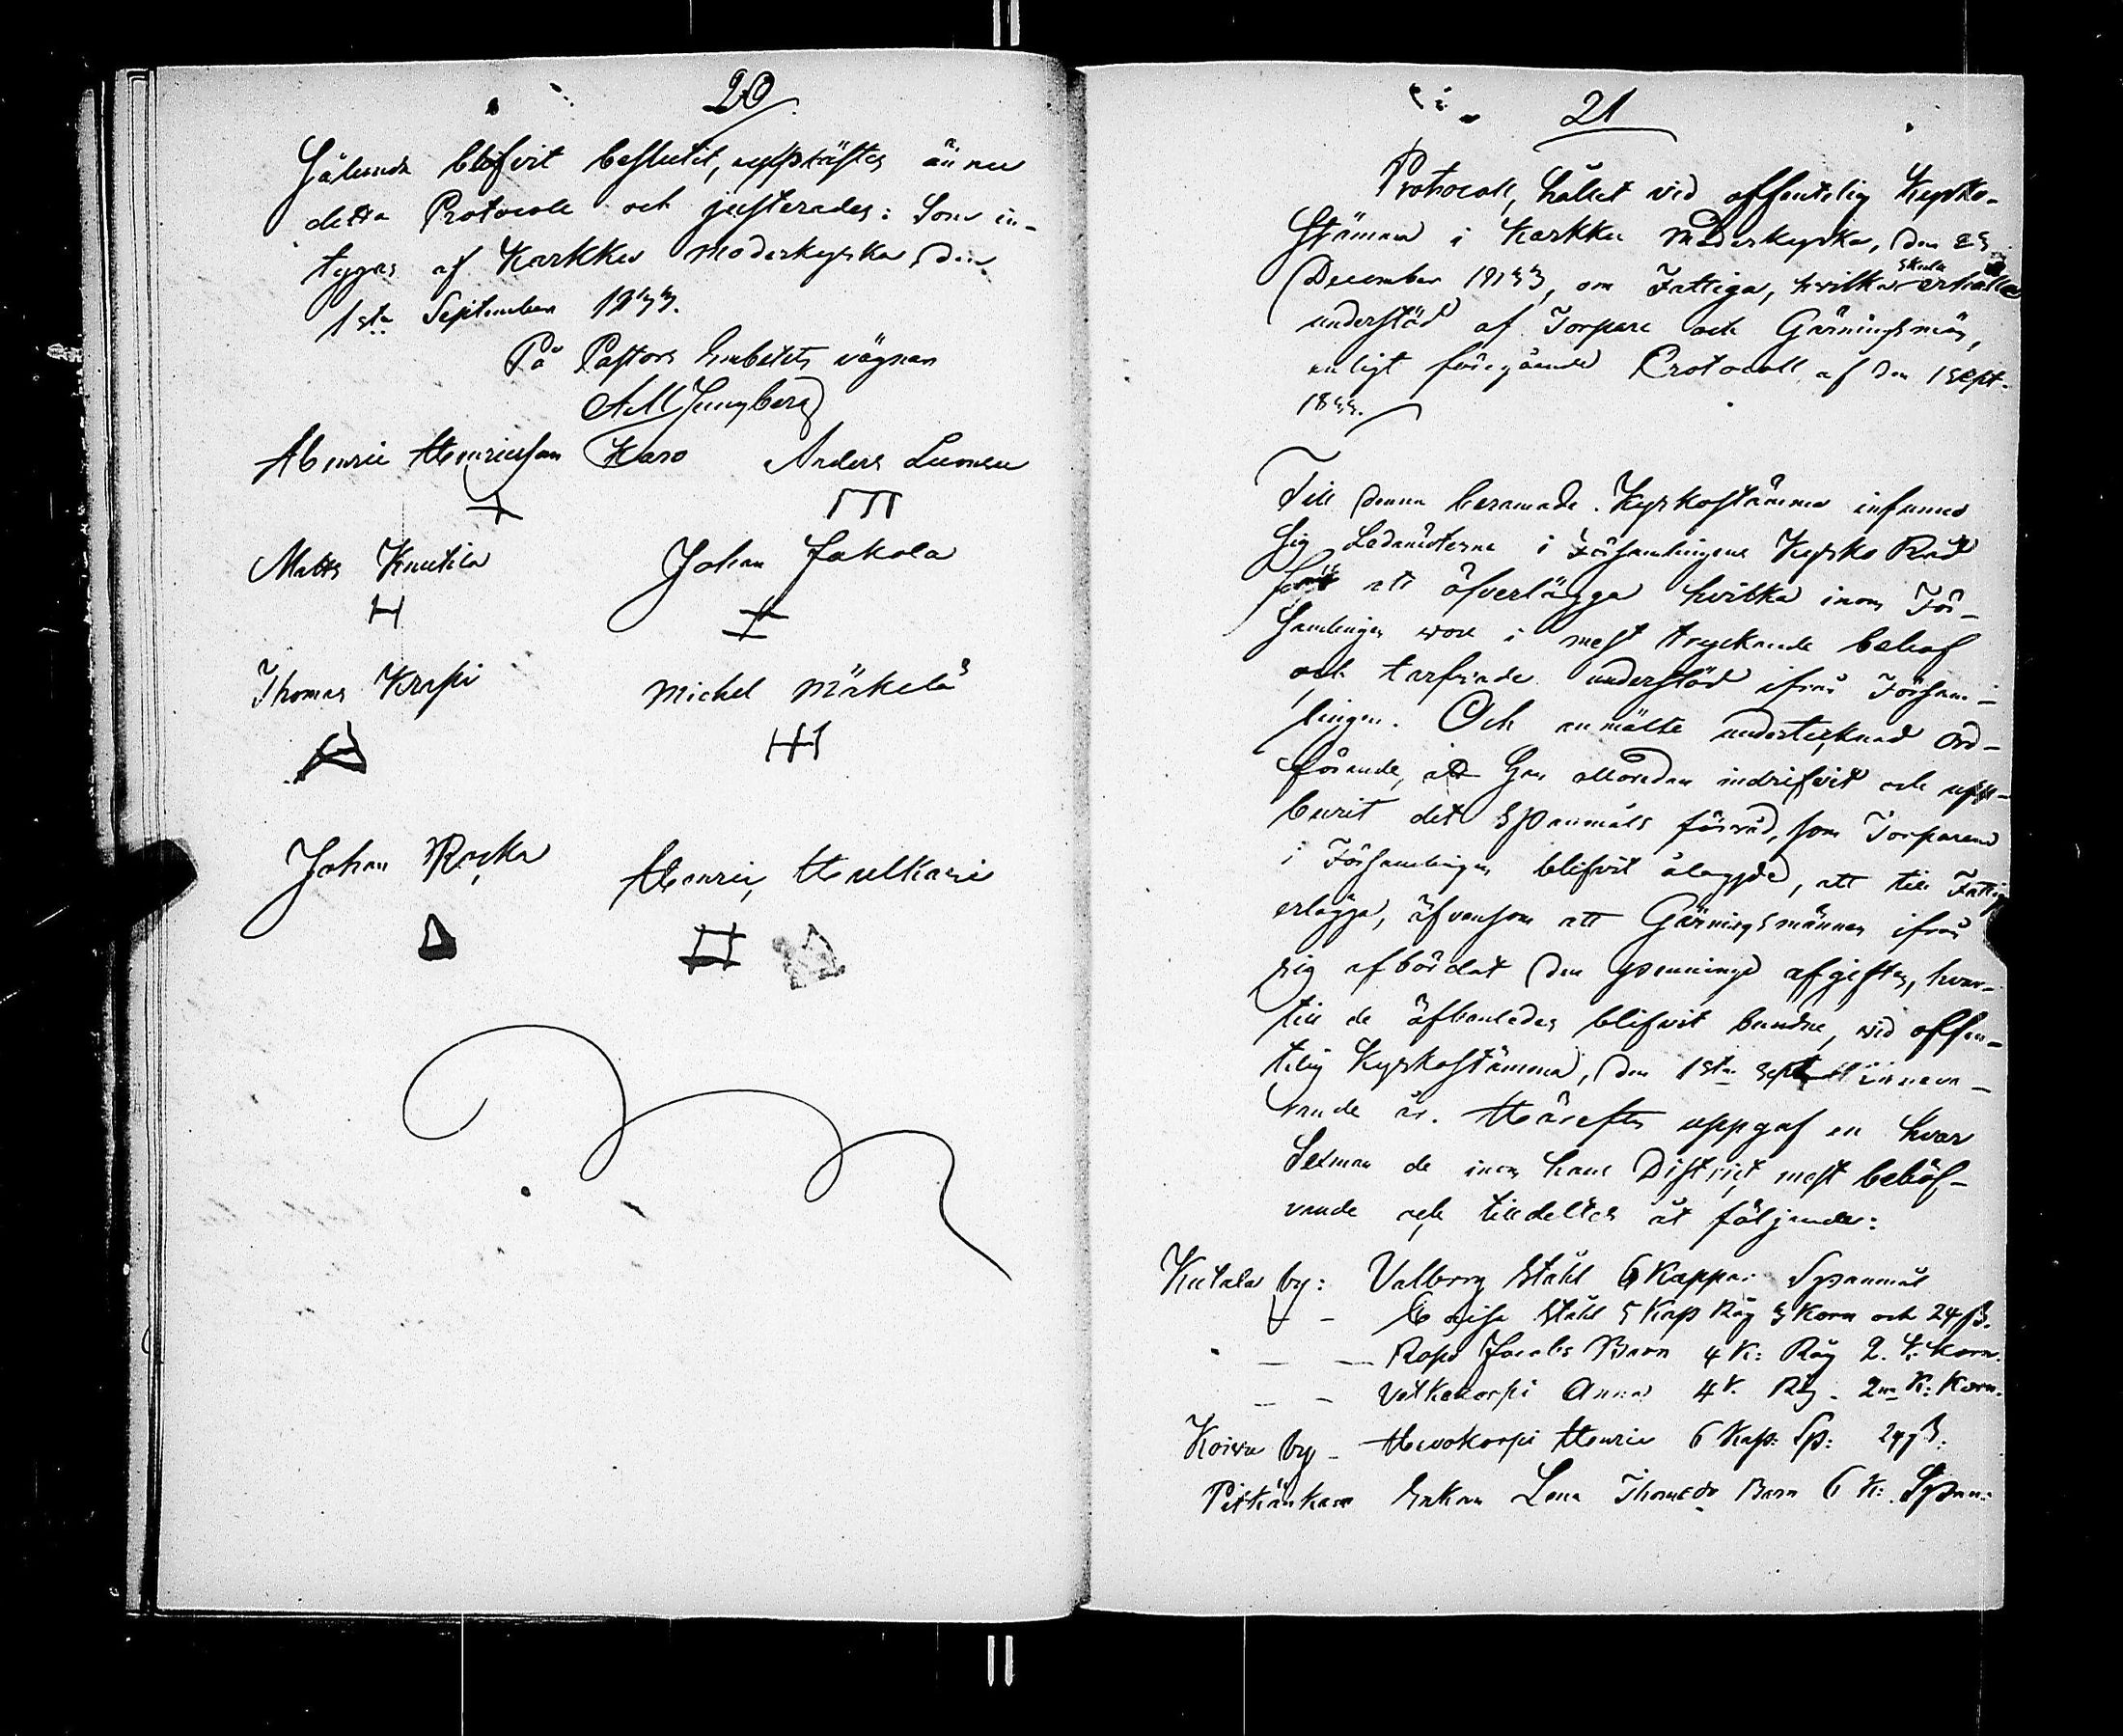 20
Sålunda blifvit beslutit, uppskrifter ännu
detta Protocoll och justerades: Som in-
tygas af Karkku Moderkyrka den
1sta September 1833.
På Pastors Embetets vägnar
A M Ljungberg
Henric Henricsson Karo Anders Luonsu
Matts Knutila Johan Jakola
H
Thomas Krapi Michel Mäkelä
Johan Rocka Henric Haulkari
21
Protocoll, hållet vid offentelig Kyrko-
stämma i Karkku Moderkyrka, den 25
December 1833, om Fattiga, hvilka skola erhålla
understöd af Torpare och Gärningsmän,
enligt föregående Protocoll af den 1 Sept.
1833.
Till denna beramade Kyrkostämma infunno
sig Ledamöterne i Församlingens Kyrko Råd
för att öfverlägga hvilka inom För-
samlingen vore i mest tryckande behof
och tarfvade understöd ifrån Försam-
lingen. Och anmälte undertecknad Ord-
förande, att han alloredan indrifvit och upp-
burit det Spanmåls förråd, som Torparena
i Församlingen blifvit ålagde, att till Fattig
erlägga, äfvensom att Gärningsmännen ifrån
sig afbördat den penninge afgiften, hvar-
till de äfvenledes blifvit bundne, vid offen-
telig Kyrkostämma, den 1sta Sept innева-
rande år. Härefter uppgaf en hvar
Sexman de inom hans District mest behöf-
vande och tilldeltes åt följande:
Kutala by: Valborg Ståhl 6 Kappar Spanmål
- - Ståhl 5 Kap Råg 3 Korn och 24 ß.
- - Ropo Jacobs Barn 4 K: Råg 2. K: Korn.
- - Vetkakorpi Anna 4 K. Råg - 2 K: Korn.
Koivu by - Hevokorpi Henric 6 Kap: Sp: 24 ß.
Enkan Lena Thomedr Barn 6 K: Span: